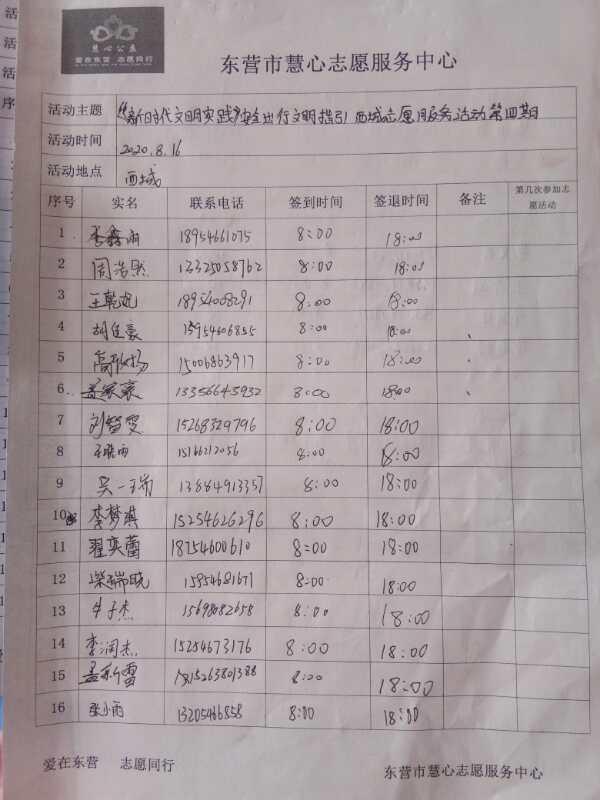 慧心公益
爱在东营 志愿同行
东营市慧心志愿服务中心
活动主题 《新时代文明实践》安全出行文明指引 西城志愿服务活动第四期
活动时间 2020.8.16
活动地点 西城
序号 实名 联系电话 签到时间 签退时间 备注 第几次参加志
愿活动
1 李鑫雨 18954661075 8:00 18:00
2 周浩然 13325058762 8:00 18:00
3 18954068291 8:00 18:00
4 8:00 18:00
5 15006863917 8:00 18:00
6 孟家豪 13356645932 8:00 18:00
7 刘智雯 15268329796 8:00 18:00
8 15166212056 8:00 18:00
9 吴一瑞 13884913357 8:00 18:00
10 李梦琪 15254626296 8:00 18:00
11 翟奕蕾 18754600610 8:00 18:00
12 柴瑞晓 15954681671 8:00 18:00
13 牛子杰 15698082658 8:00 18:00
14 李润杰 15254673176 8:00 18:00
15 15263801388 8:00 18:00
16 张小雨 13205466858 8:00 18:00
爱在东营 志愿同行 东营市慧心志愿服务中心